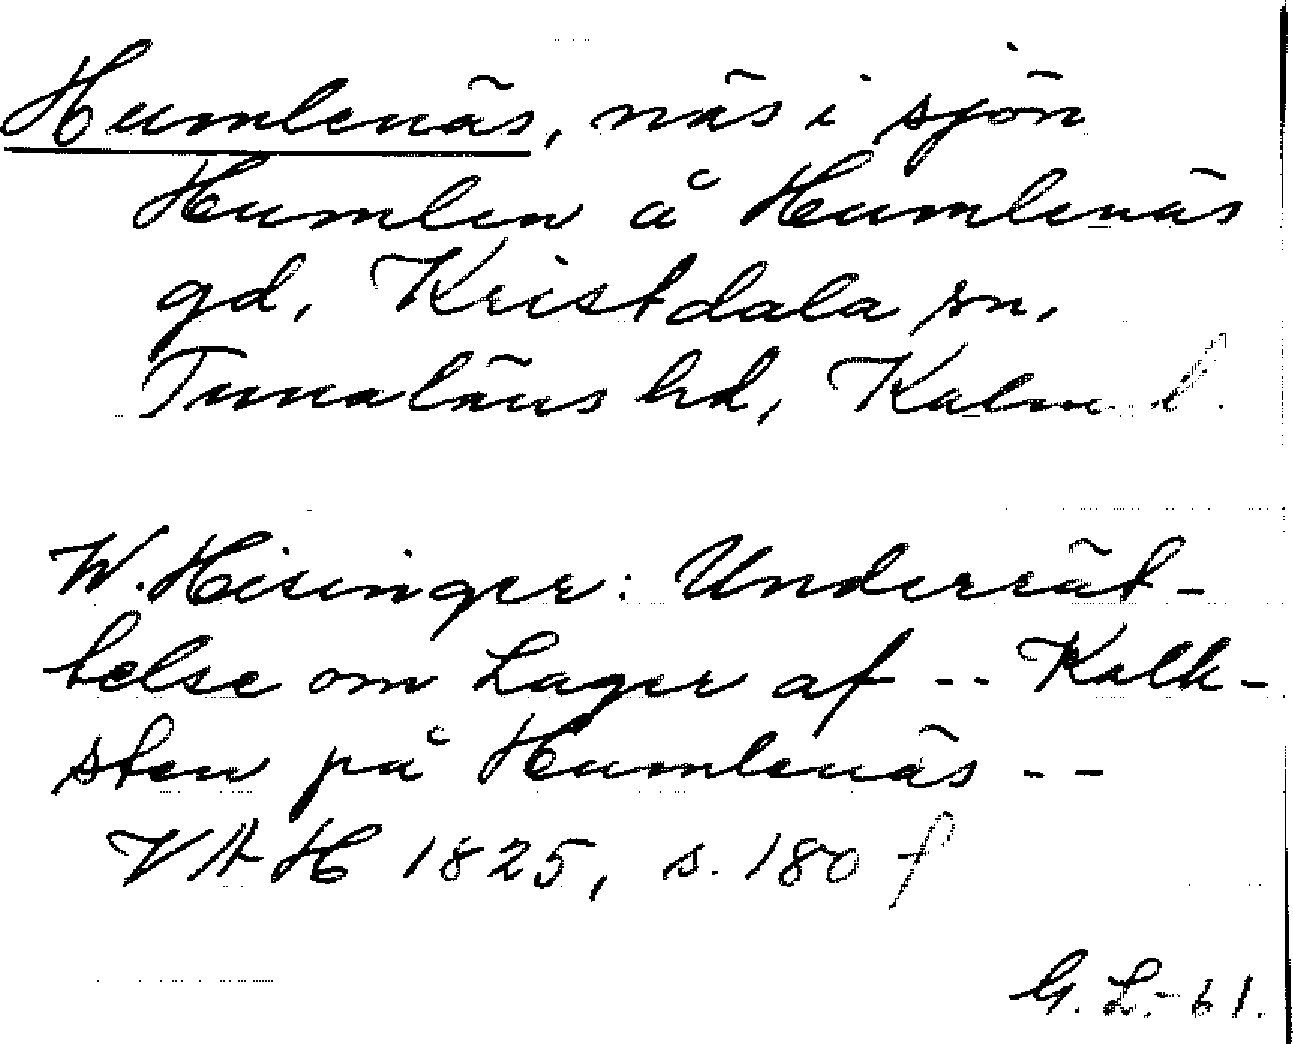 Humlenäs, näs i sjön
Humlen å Humlenäs
gd, Kristdala sn,
Tunaläns hd, Kalm l.
W. Hisinger: Underrät-
telse om Lager af -- Kalk-
sten på Humlenäs --
VAH 1825, s. 180 f
G. L. -61.